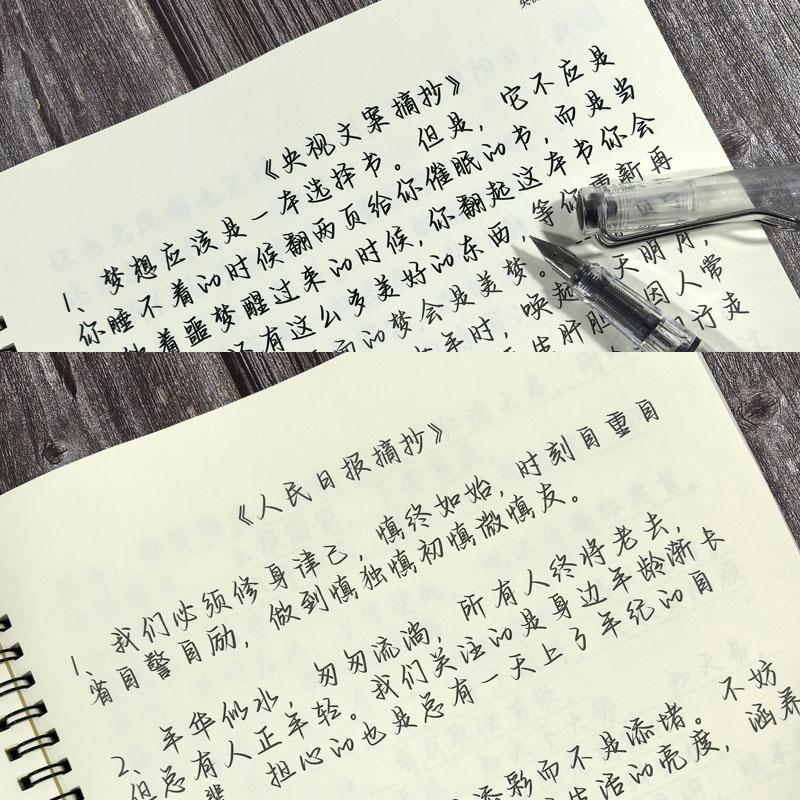 《央视文案摘抄》
1、梦想应该是一本选择书。但是，它不应是
你睡不着的时候翻两页给你催眠的书，而是当
着噩梦醒过来的时候，你翻起这本书你会
还有这么多美好的东西，等你重新再
的梦会是美梦。天明月，
年时，唤起因人常
生肝胆行走
《人民日报摘抄》
1、我们必须修身律己，慎终如始，时刻自重自
省自警自励，做到慎独慎初慎微慎友。
2、年华似水，匆匆流淌，所有人终将老去，
但总有人正年轻。我们关注的是身边年龄渐长
辈，担心的也是总有一天上了年纪的自
添彩而不是添堵。不妨
生活的亮度，涵养